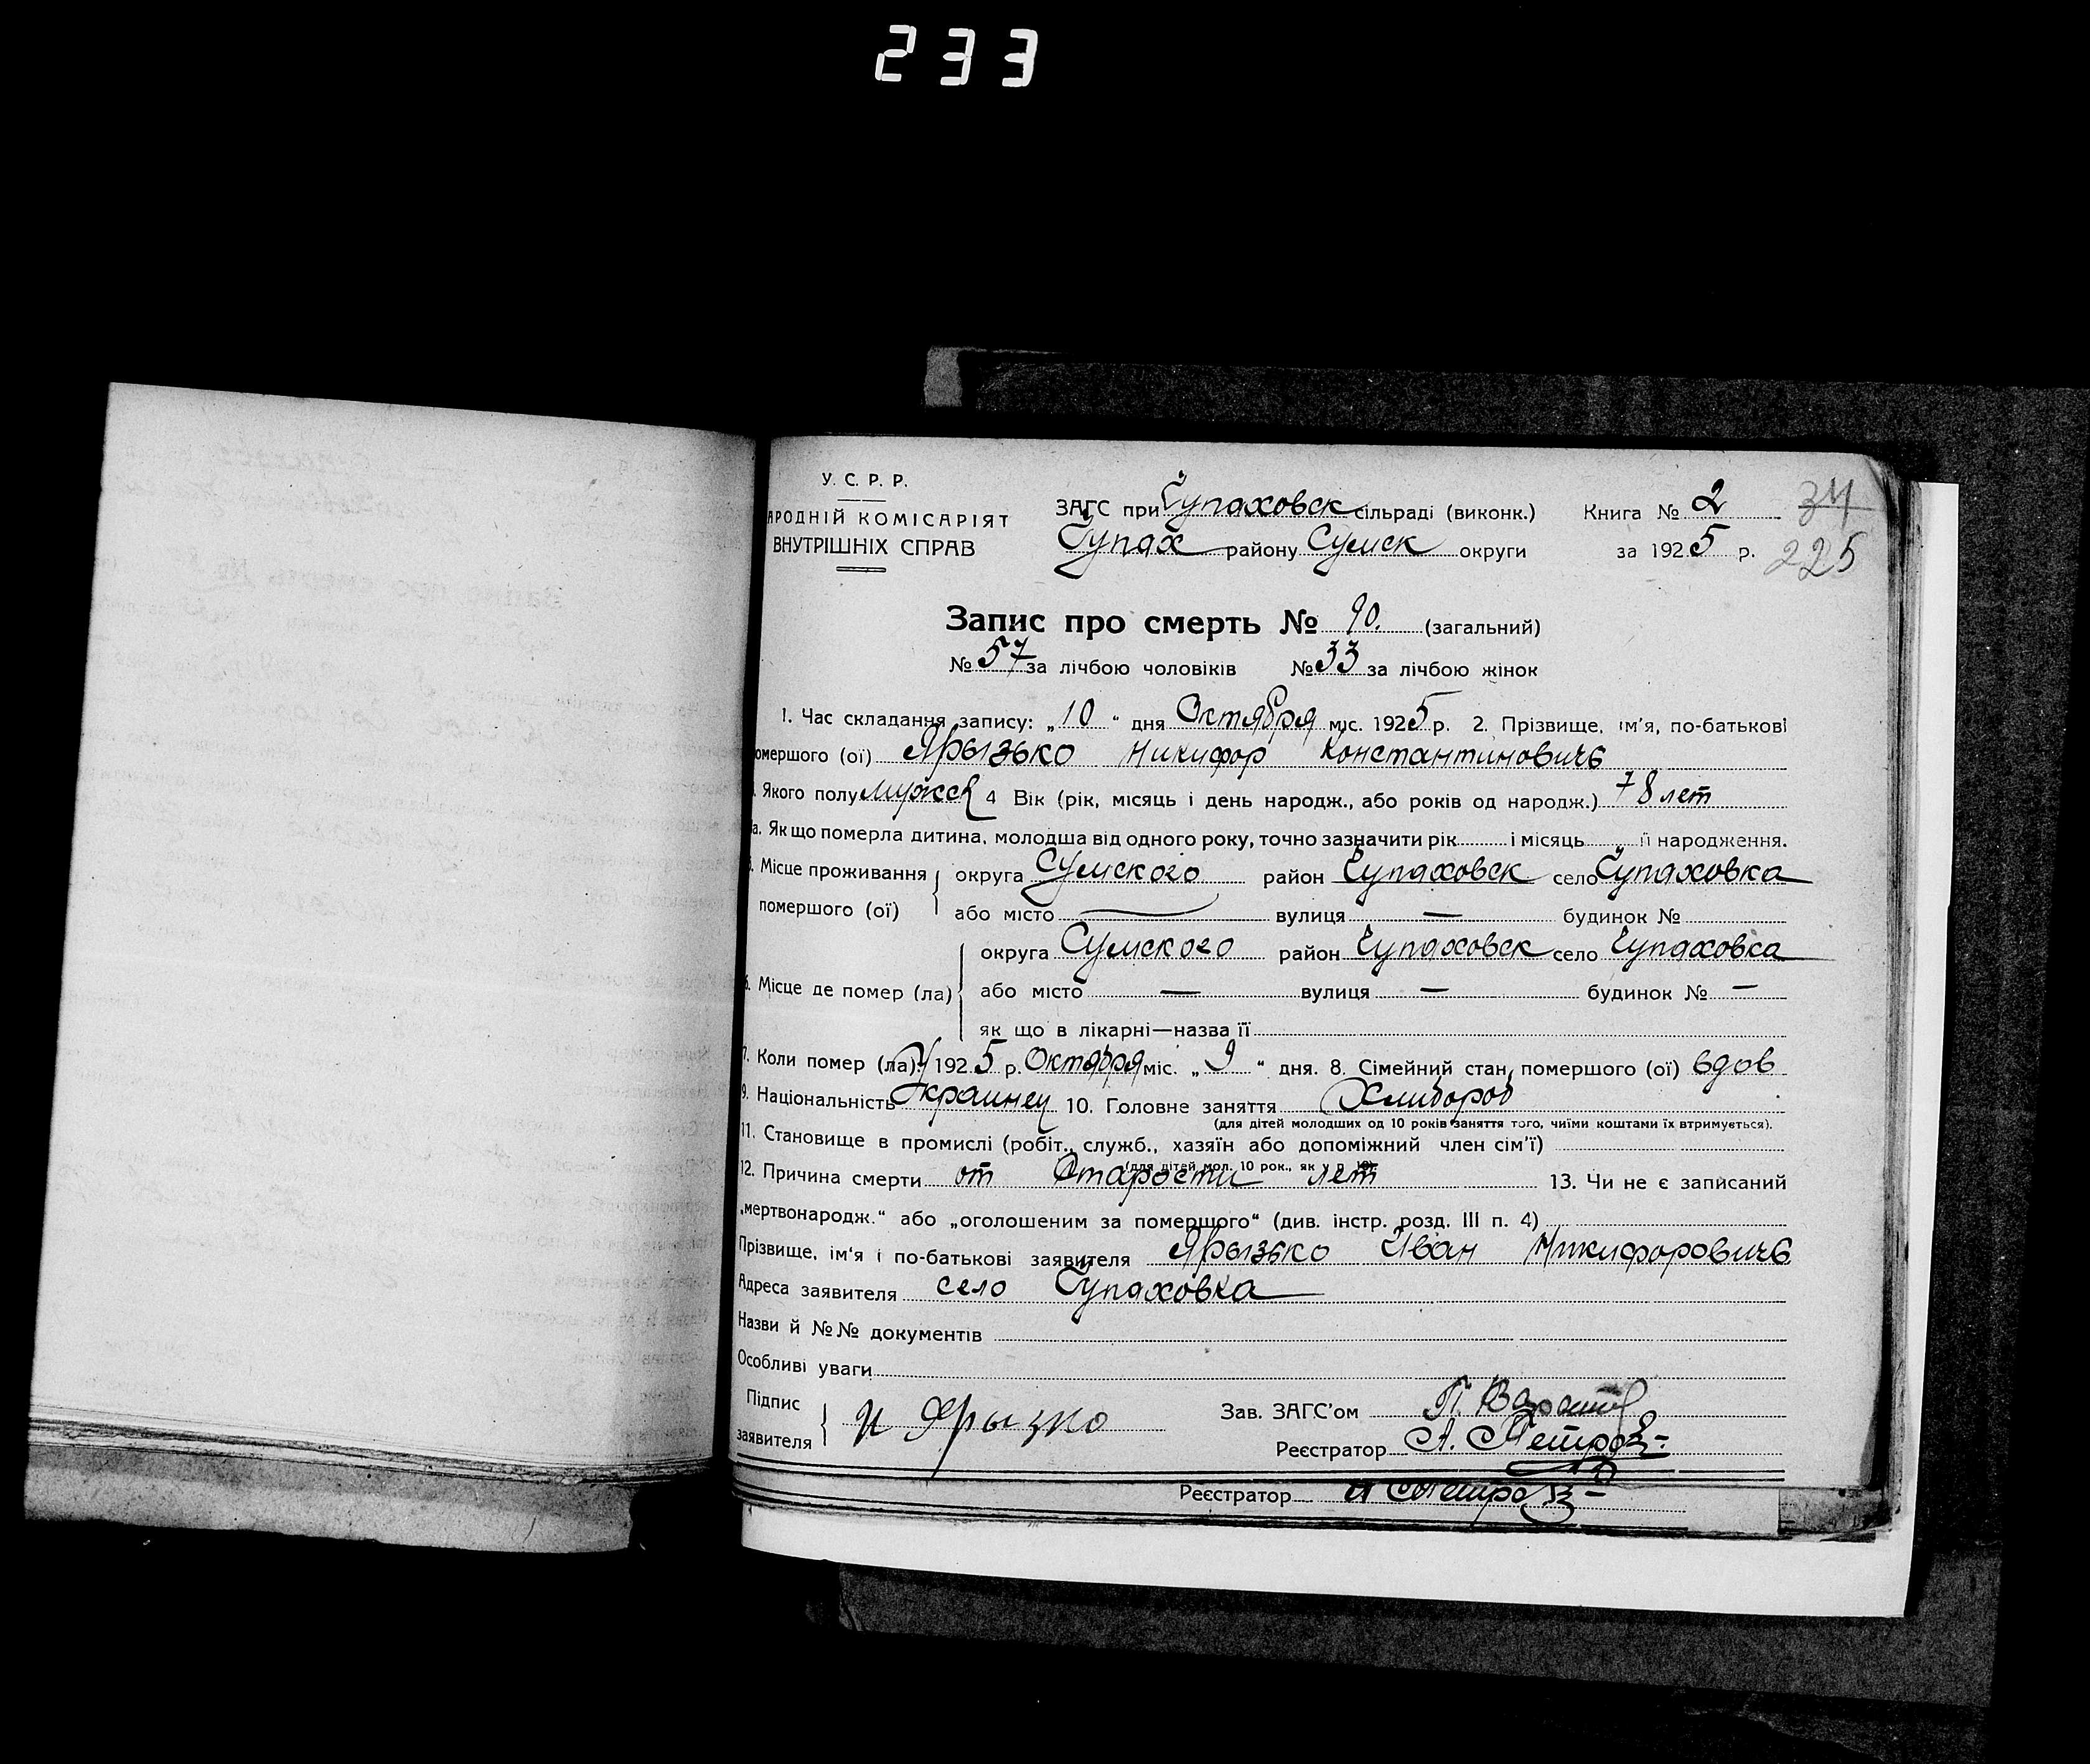 233
У. С. Р. Р.
АРОДНІЙ КОМІСАРІЯТ
ВНУТРІШНІХ СПРАВ
ЗАГС при Чупаховск сільраді (виконк.) Книга № 2 34
Чупах району Сумск округи за 1925 р. 225
Запис про смерть № 90. (загальний)
№ 57 за лічбою чоловіків № 33 за лічбою жінок
1. Час складання запису: „10“ дня Октября міс. 1925 р. 2. Прізвище, ім'я, по-батькові
омершого (ої) Ярызько Никифор Константиновичъ
Якого полу мужск 4 Вік (рік, місяць і день народж., або років од народж.) 78 лет
а. Якщо померла дитина, молодша від одного року, точно зазначити рік і місяць її народження.
Місце проживання округа Сумского район Чупаховск село Чупаховка
помершого (ої) або місто — вулиця — будинок №
округа Сумского район Чупаховск село Чупаховка
6. Місце де помер (ла) або місто — вулиця — будинок № —
як що в лікарні—назва її
7. Коли помер (ла) 1925 р. Октября міс. „9“ дня. 8. Сімейний стан помершого (ої) вдов
9. Національність Украинец 10. Головне заняття Хлибороб
(для дітей молодших од 10 років заняття того, чиїми коштами їх втримується).
11. Становище в промислі (робіт., служб., хазяїн або допоміжний член сім'ї)
(для дітей мол. 10 рок., як у п. 10).
12. Причина смерти от Старости лет 13. Чи не є записаний
„мертвонародж.“ або „оголошеним за помершого“ (див. інстр. розд. III п. 4)
Прізвище, ім'я і по-батькові заявителя Ярызько Иван Никифоровичъ
Адреса заявителя село Чупаховка
Назви й №№ документів
Особливі уваги
Підпис
заявителя И Ярызко
Зав. ЗАГС'ом П.
Реєстратор А. Петров
Реєстратор А Петров